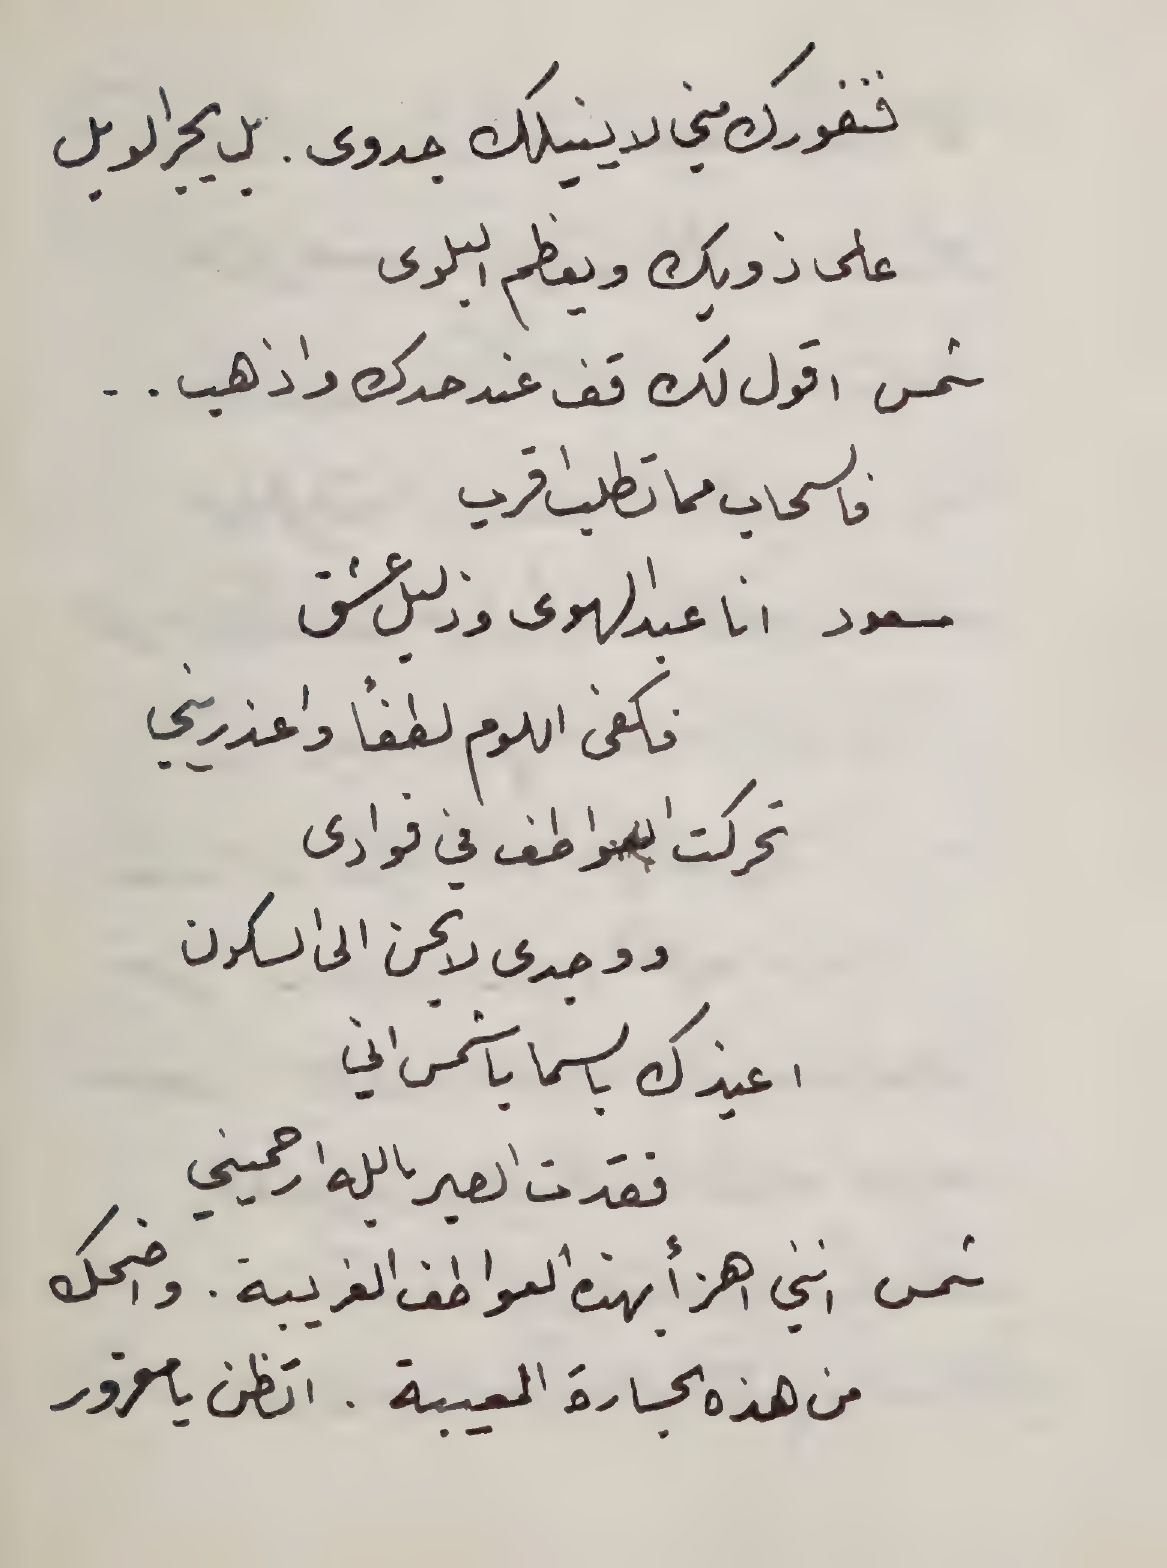 فنفورك مني لا ينيلك جدوى . بل يجر الويل
على ذويك ويعظم البلوى
شمس اقول لك قف عند حدك واذهب . .
فالسحاب مما تطلب اقرب
مسعود انا عبد الهوى وذليل عشق
فكفى اللوم لطفاً واعذريني
تحركت العواطف في فوادى
ووجدى لا يحن الى السكون
اعيذك بالسما يا شمس اني
فقدت الصبر بالله ارحميني
شمس انني اهزأ بهذه العواطف الغريبة . واضحك
من هذه الجسارة المعيبة . اتظن يا مغرور